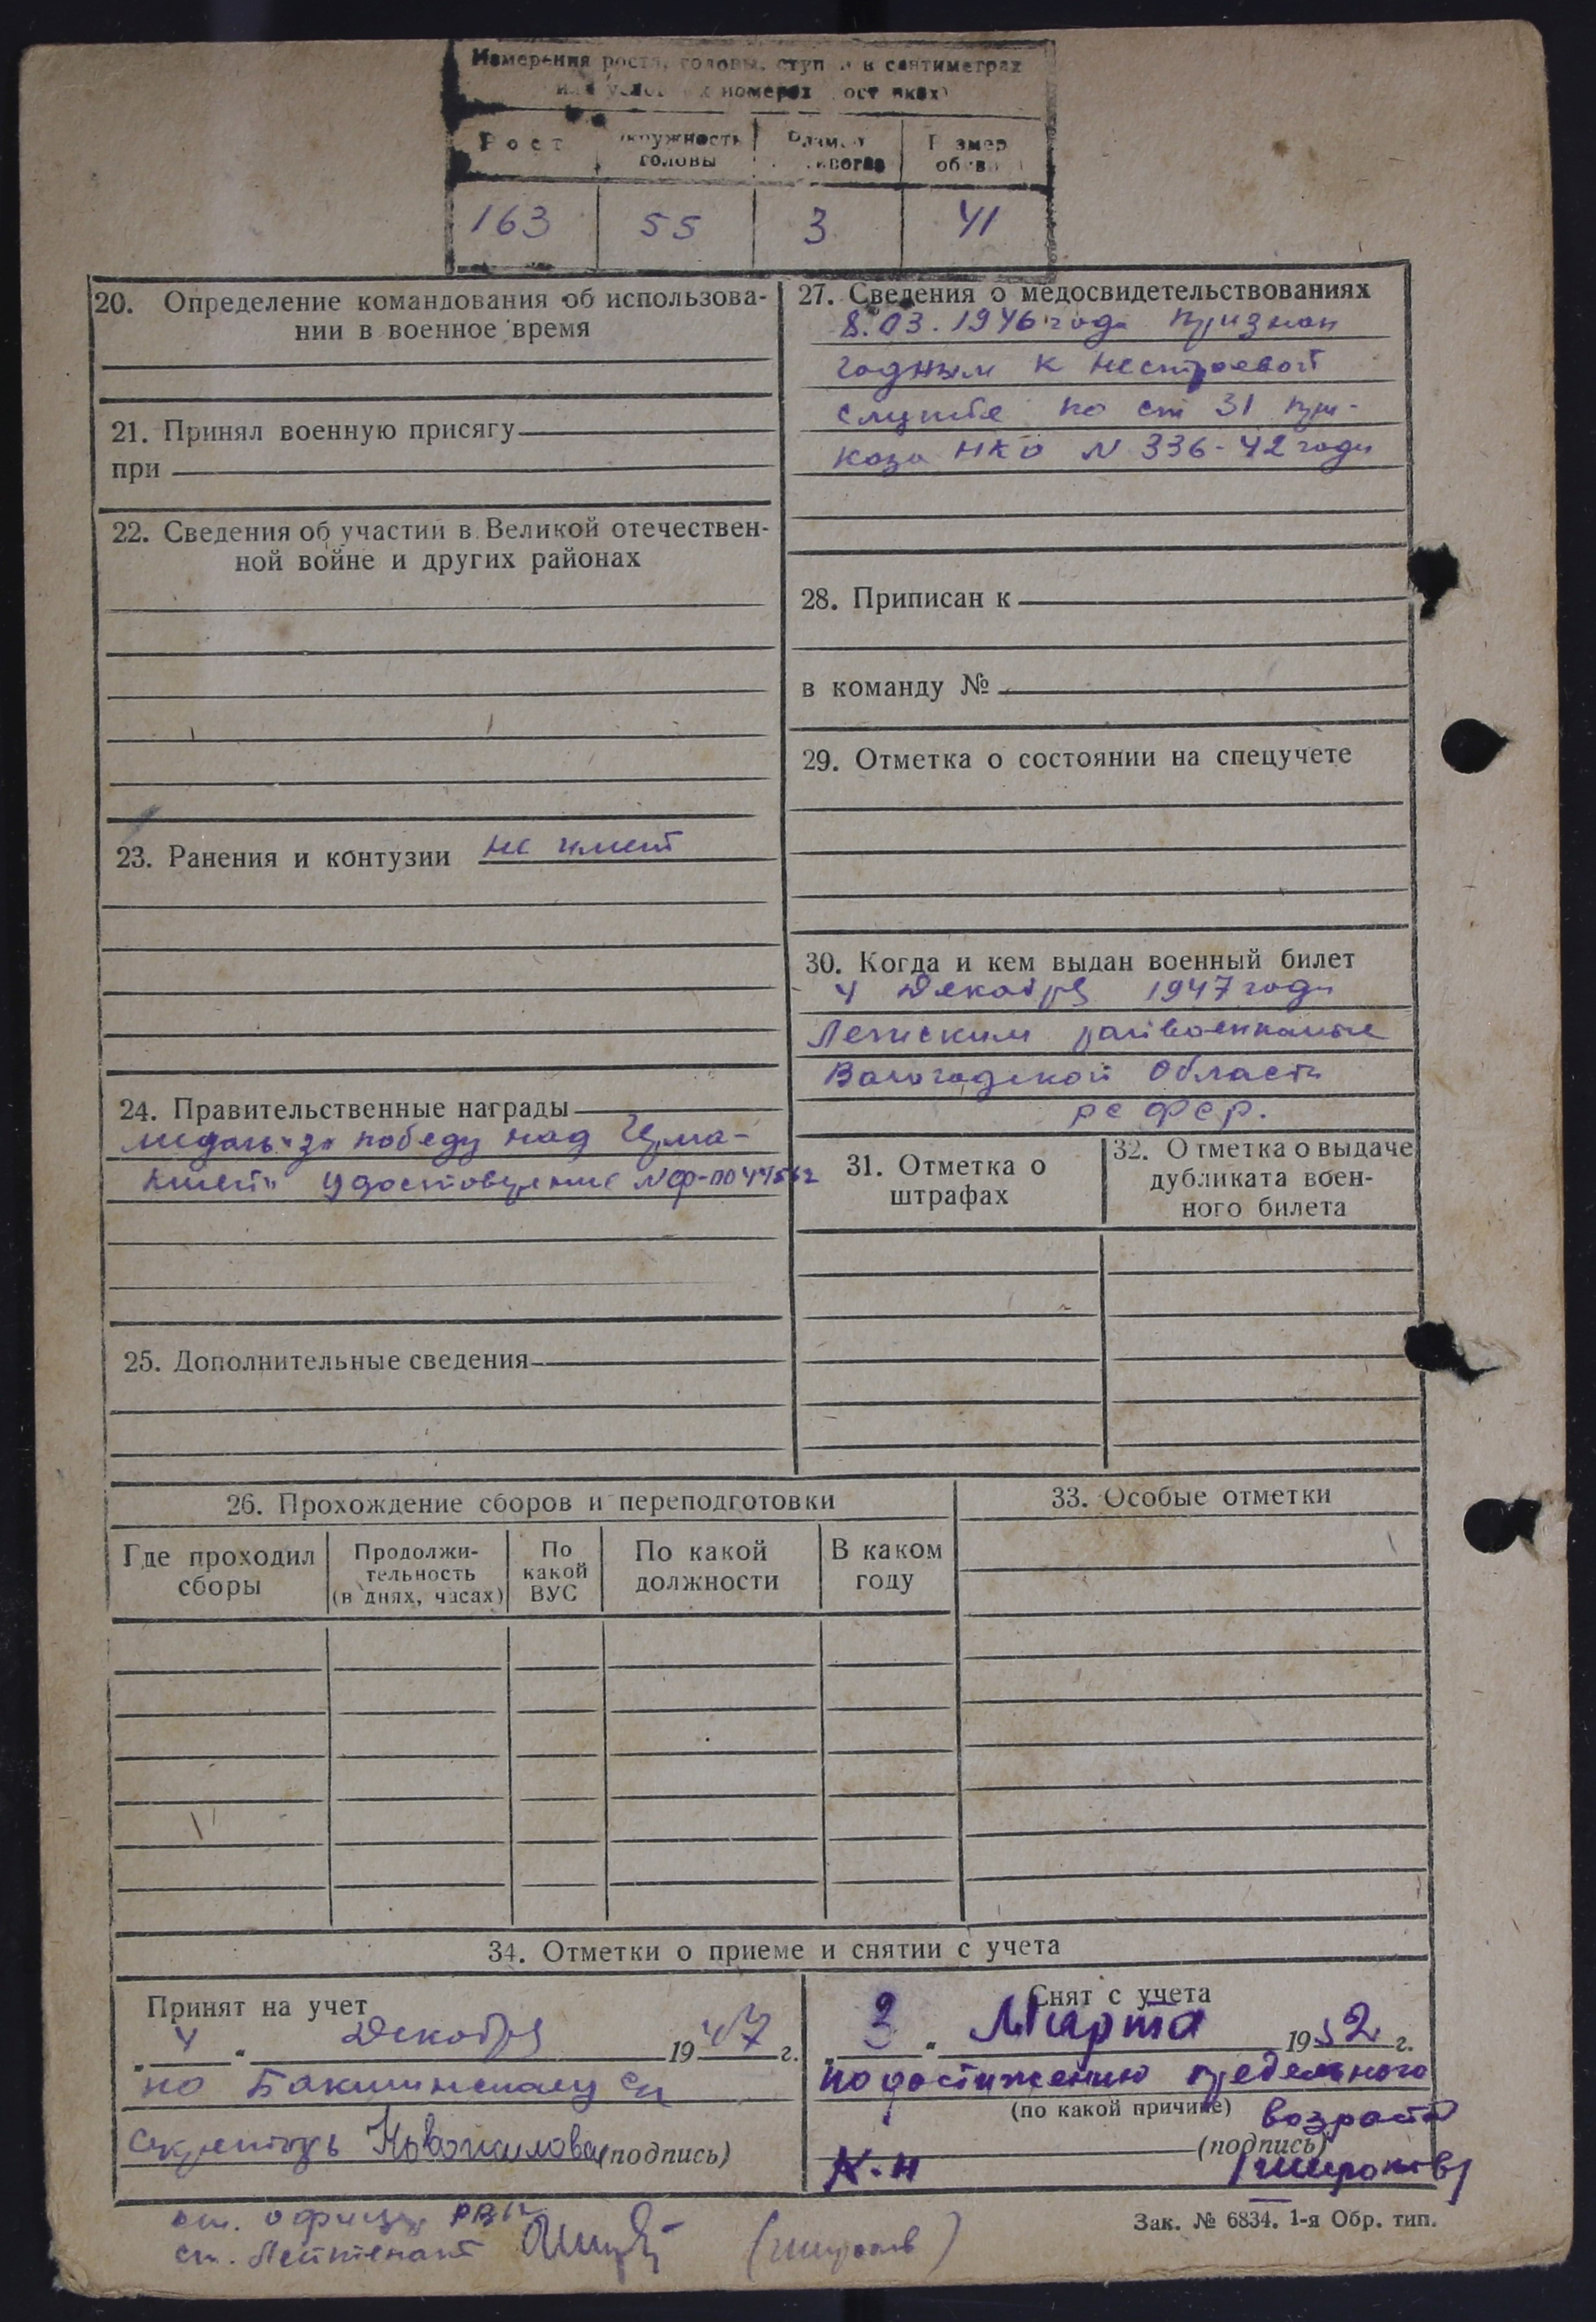 Измерения роста, головы, ступ и в сантиметрах
номерах
Рост
окружность головы
Размер
Размер обуви
163 55 3 41
20. Определение командования об использова-
нии в военное время
21. Принял военную присягу
при
22. Сведения об участии в Великой отечествен-
ной войне и других районах
23. Ранения и контузии не имеет
24. Правительственные награды
медаль "за победу над Герма-
нией" удостоверение №Ф-0044562
25. Дополнительные сведения
27. Сведения о медосвидетельствованиях
8.03.1946 года признан
годным к нестроевой
службе по ст 31 при-
каза НКО N 336-42 года
28. Приписан к
в команду №
29. Отметка о состоянии на спецучете
30. Когда и кем выдан военный билет
4 Декабря 1947 года
Лежским райвоенкомом
Вологодской Области
РСФСР.
31. Отметка о
штрафах
32. Отметка о выдаче
дубликата воен-
ного билета
26. Прохождение сборов и переподготовки
Где проходил
сборы
Продолжи-
тельность
(в днях, часах)
По
какой
ВУС
По какой
должности
В каком
году
33. Особые отметки
34. Отметки о приеме и снятии с учета
Принят на учет
"4" Декабря 1947 г.
по Бакшинскому с/с
секретарь (подпись)
Снят с учета
"3" Марта 1952 г.
по достижению предельного
(по какой причине) возраста
(подпись)
К-н
офицер РВК
ст. Лейтенант
Зак. № 6834. 1-я Обр. тип.